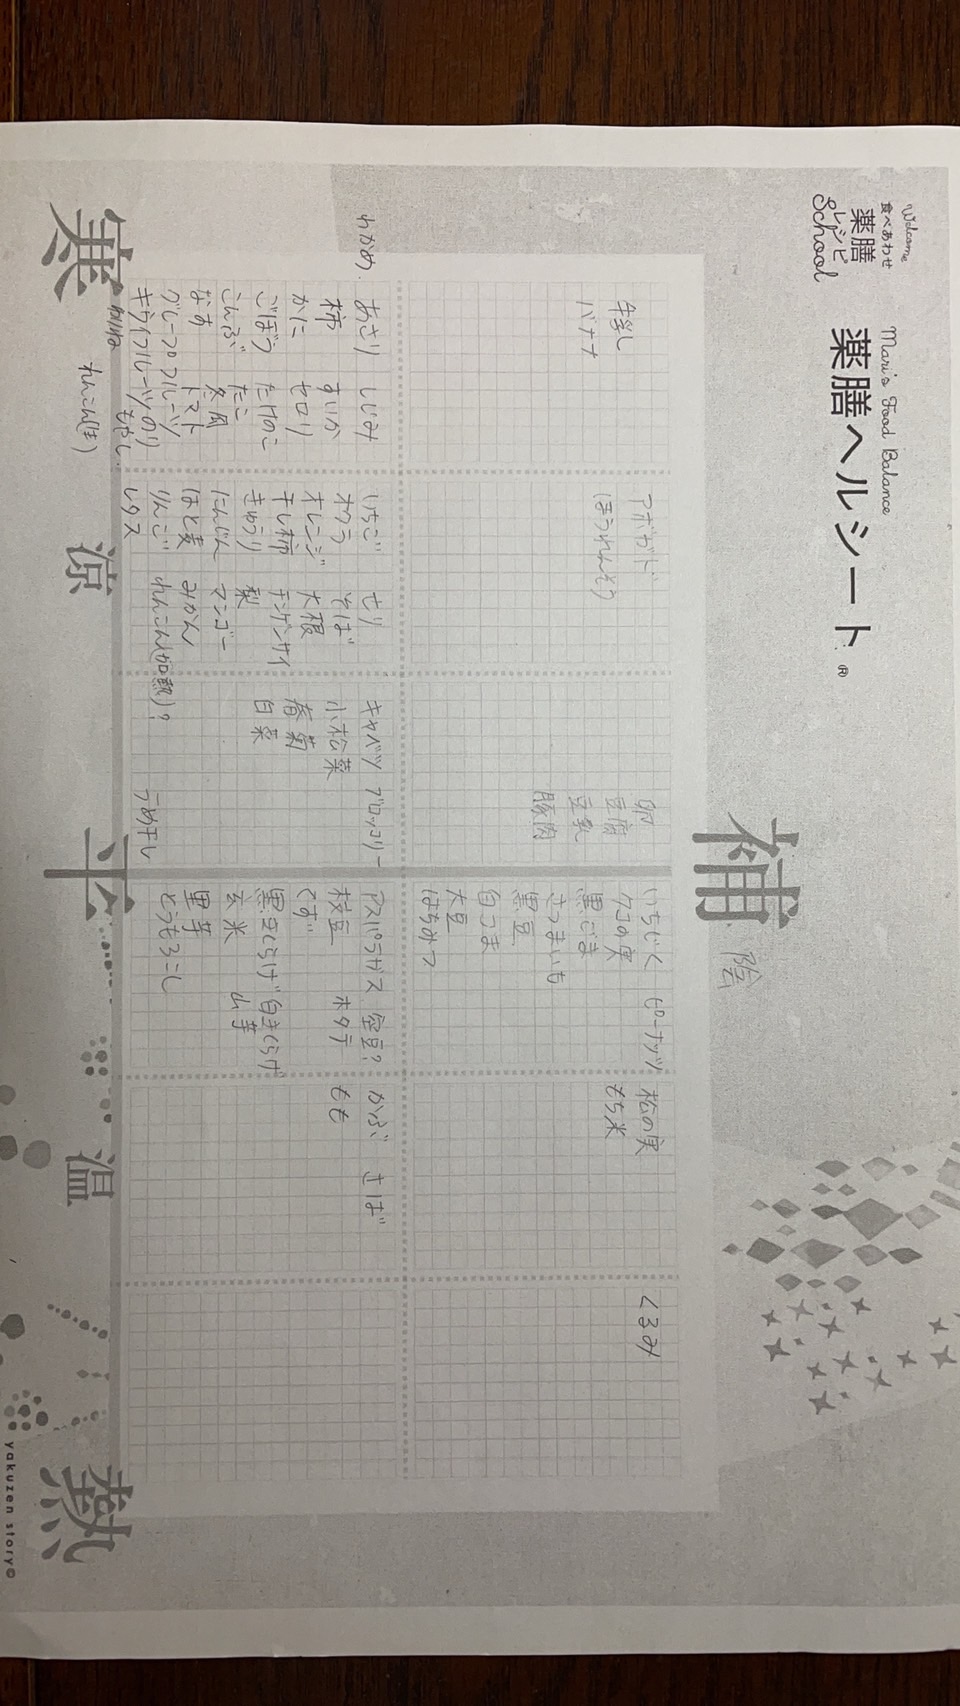 Welcome
食べあわせ
薬膳
レシピ
School
Mari's Food Balance
薬膳ヘルシート®
補 陰
牛乳
バナナ
アボガド
(ほうれんそう)
卵
豆腐
豆乳
豚肉
いちじく ピーナッツ
クコの実
黒ごま
さつまいも
黒豆
白ごま
大豆
はちみつ
松の実
もち米
くるみ
わかめ. あさり しじみ
柿 すいか
かに セロリ
ごぼう たけのこ
こんぶ たこ
なす 冬瓜
トマト
グレープフルーツ
キウイフルーツ のり
もやし.
れんこん(生)
いちご せり
オクラ そば
オレンジ 大根
干し柿 チンゲンサイ
きゅうり 梨
にんじん マンゴー
はと麦 みかん
りんご れんこん(加熱)?
レタス
キャベツ ブロッコリー
小松菜
春菊
白菜
うめ干し
アスパラガス 空豆?
枝豆 ホタテ
黒きくらげ 白きくらげ
玄米 山芋
里芋
とうもろこし
かぶ さば
もも
寒 涼 平 温 熱
yakuzen story©